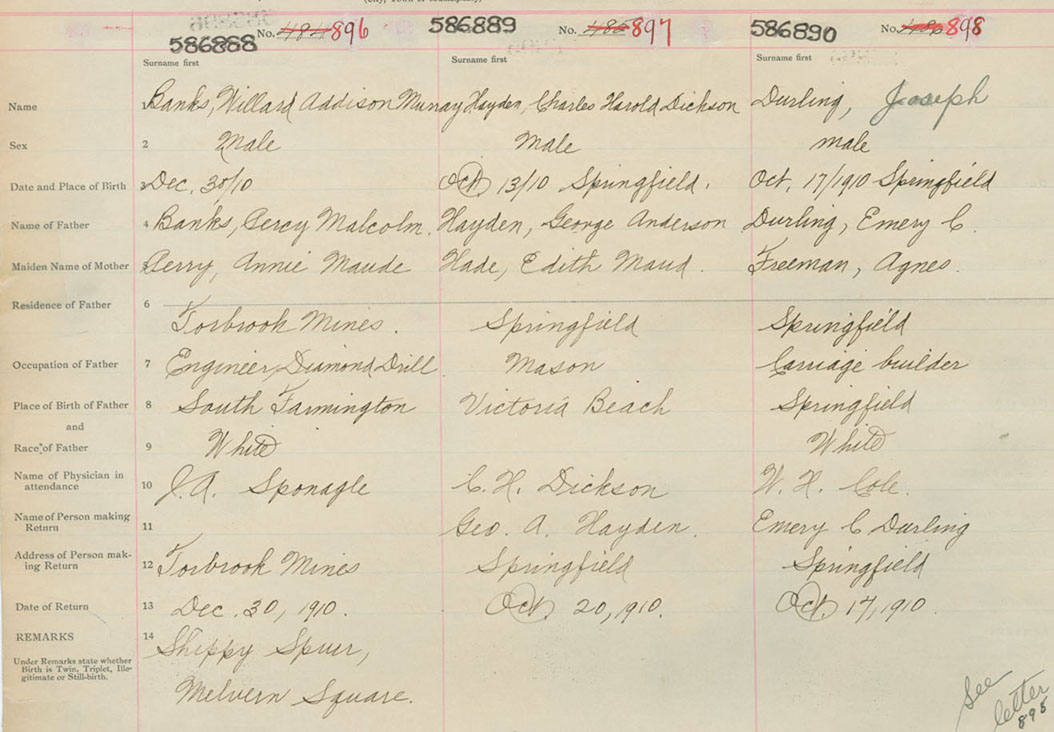 (City, Town or Municipality)
586888 No. 484 896 586889 No. 485 897 586890 No. 486 898
Surname first Surname first Surname first
Name 1 Banks, Willard Addison Murray Hayden, Charles Harold Dickson Durling, Joseph
Sex 2 Male Male male
Date and Place of Birth 3 Dec. 30/10 Oct 13/10 Springfield. Oct. 17/1910 Springfield
Name of Father 4 Banks, Percy Malcolm. Hayden, George Anderson Durling, Emery C.
Maiden Name of Mother 5 Berry, Annie Maude Hade, Edith Maud. Freeman, Agnes.
Residence of Father 6
Torbrook Mines. Springfield Springfield
Occupation of Father 7 Engineer, Diamond Drill Mason Carriage builder
Place of Birth of Father 8 South Farmington Victoria Beach Springfield
and
Race of Father 9 White White
Name of Physician in
attendance 10 J. A. Sponagle C. H. Dickson W. H. Cole.
Name of Person making
Return 11 Geo. A. Hayden. Emery C Durling
Address of Person mak-
ing Return 12 Torbrook Mines Springfield Springfield
Date of Return 13 Dec. 30, 1910. Oct. 20, 1910. Oct. 17, 1910.
REMARKS 14 Shippy Spurr,
Under Remarks state whether
Birth is Twin, Triplet, Ille-
gitimate or Still-birth.
Melvern Square.
See
letter
895